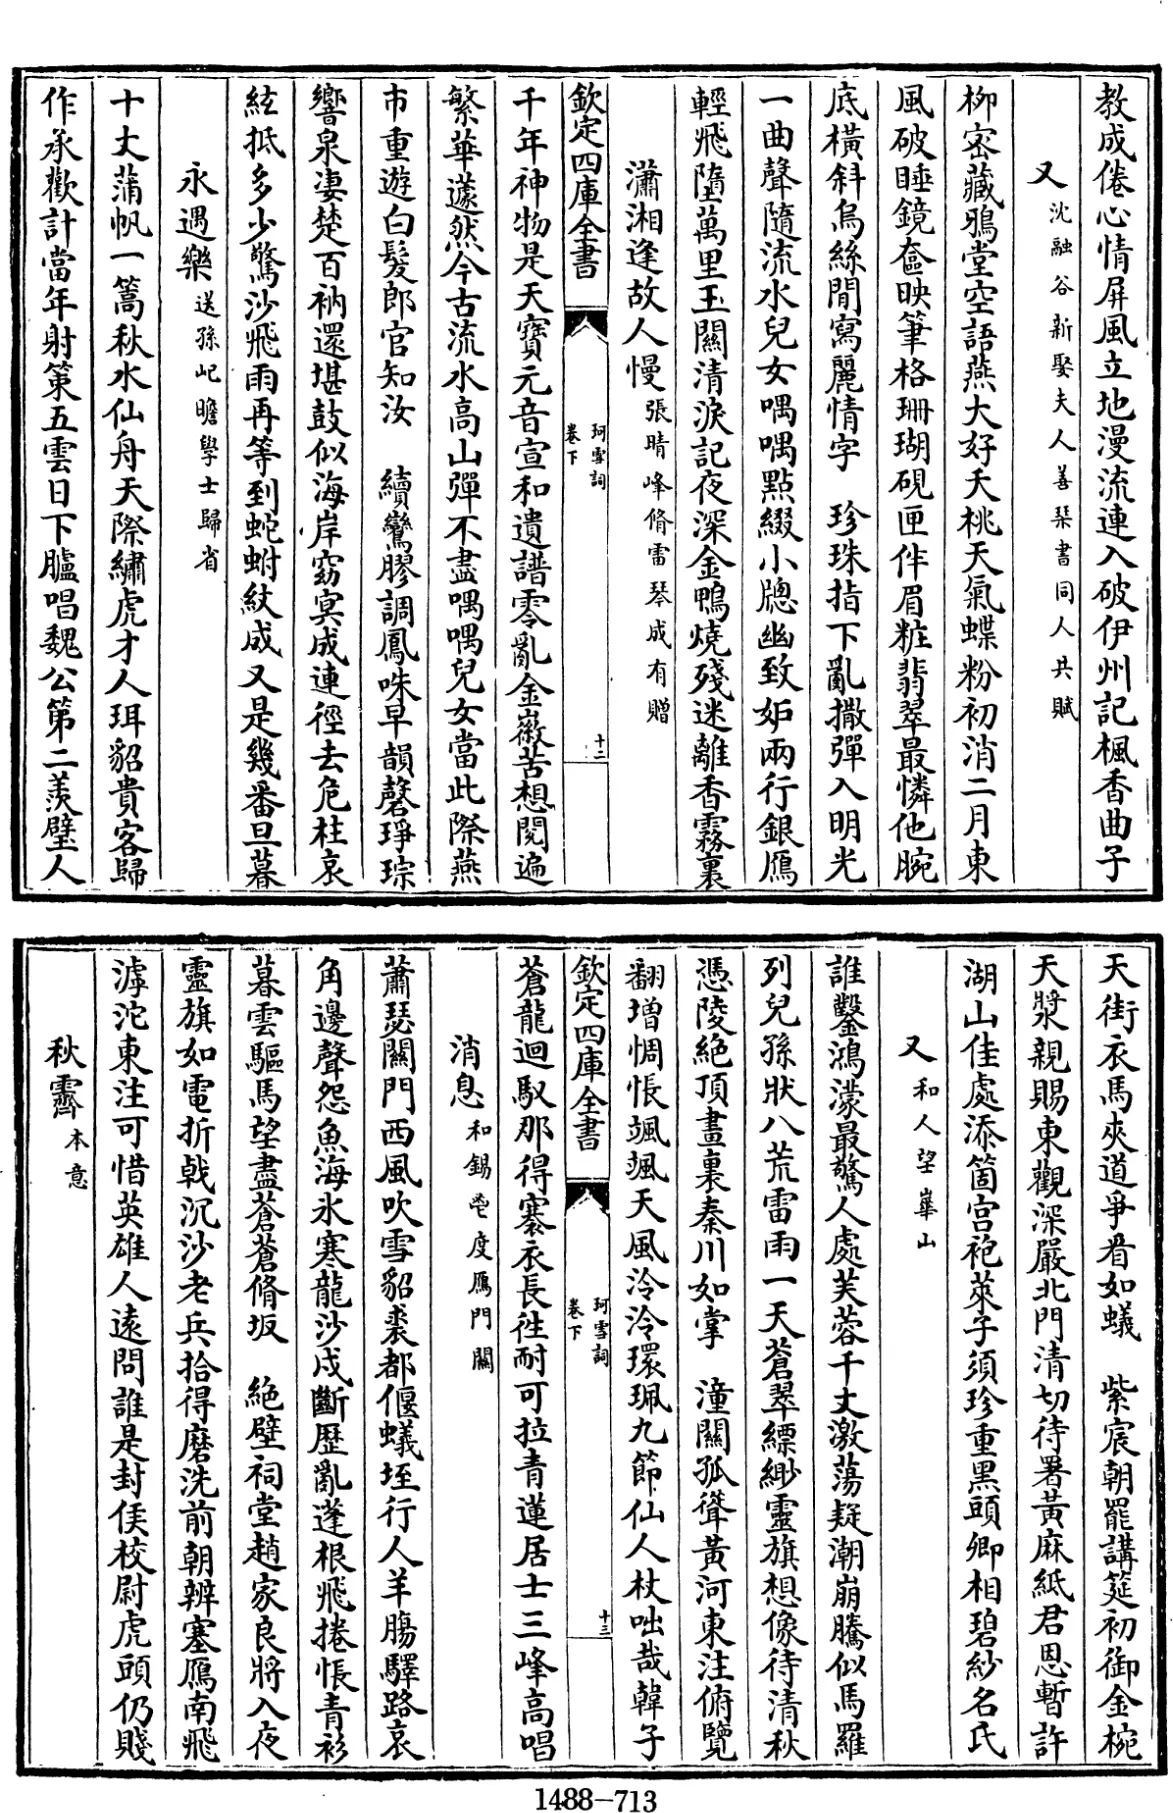 教成倦心情屏風立地漫流連入破伊州記楓香曲子
又沈融谷新娶夫人善琹書同人共賦
柳宻藏鴉堂空語燕大好夭桃天氣蝶粉初消二月東
風破睡鏡奩映筆格珊瑚硯匣伴眉粧翡翠最憐他腕
底橫斜烏絲閒寫麗情字 珍珠指下亂撒彈入明光
一曲聲隨流水兒女喁喁點綴小牕幽致妒兩行銀鴈
輕飛墮萬里玉關清淚記夜深金鴨燒殘迷離香霧裏
瀟湘逢故人慢張晴峰脩雷琴成有贈
欽定四庫全書
珂雪詞
卷下
十二
千年神物是天寶元音宣和遺譜零亂金徽苦想閱遍
繁華蘧然今古流水高山彈不盡喁喁兒女當此際燕
市重遊白髪郎官知汝 續鸞膠調鳳咮早韻磬琤琮
響泉凄楚百衲還堪鼓似海岸窈㝠成連徑去危柱哀
絃抵多少驚沙飛雨再等到蛇蚹紋成又是幾番旦暮
永遇樂送孫屺瞻學士歸省
十丈蒲帆一篙秋水仙舟天際繡虎才人珥貂貴客歸
作承歡計當年射策五雲日下臚唱魏公第二羡璧人
天街衣馬夾道爭㸔如蟻 紫宸朝罷講筵初御金椀
天漿親賜東觀深嚴北門清切待署黄麻紙君恩暫許
湖山佳處添箇宫袍萊子須珍重黒頭卿相碧紗名氏
又和人望崋山
誰鑿鴻濛最驚人處芙蓉千丈激蕩疑潮崩騰似馬羅
列兒孫狀八荒雷雨一天蒼翠縹緲靈旗想像待清秋
憑陵絶頂畫裏秦川如掌 潼關孤聳黄河東注俯覽
翻增惆悵颯颯天風泠泠環珮九節仙人杖咄哉韓子
欽定四庫全書
珂雪詞
卷下
十三
蒼龍迴馭那得褰衣長徃耐可拉青蓮居士三峰高唱
消息和錫鬯度鴈門關
蕭瑟關門西風吹雪貂裘都偃蟻垤行人羊腸驛路哀
角邊聲怨魚海氷寒龍沙戍斷歴亂蓬根飛捲悵青衫
暮雲驅馬望盡蒼蒼脩坂 絶壁祠堂趙家良將入夜
靈旗如電折戟沉沙老兵拾得磨洗前朝辨塞鴈南飛
滹沱東注可惜英雄人逺問誰是封侯校尉虎頭仍賤
秋霽本意
1488—713